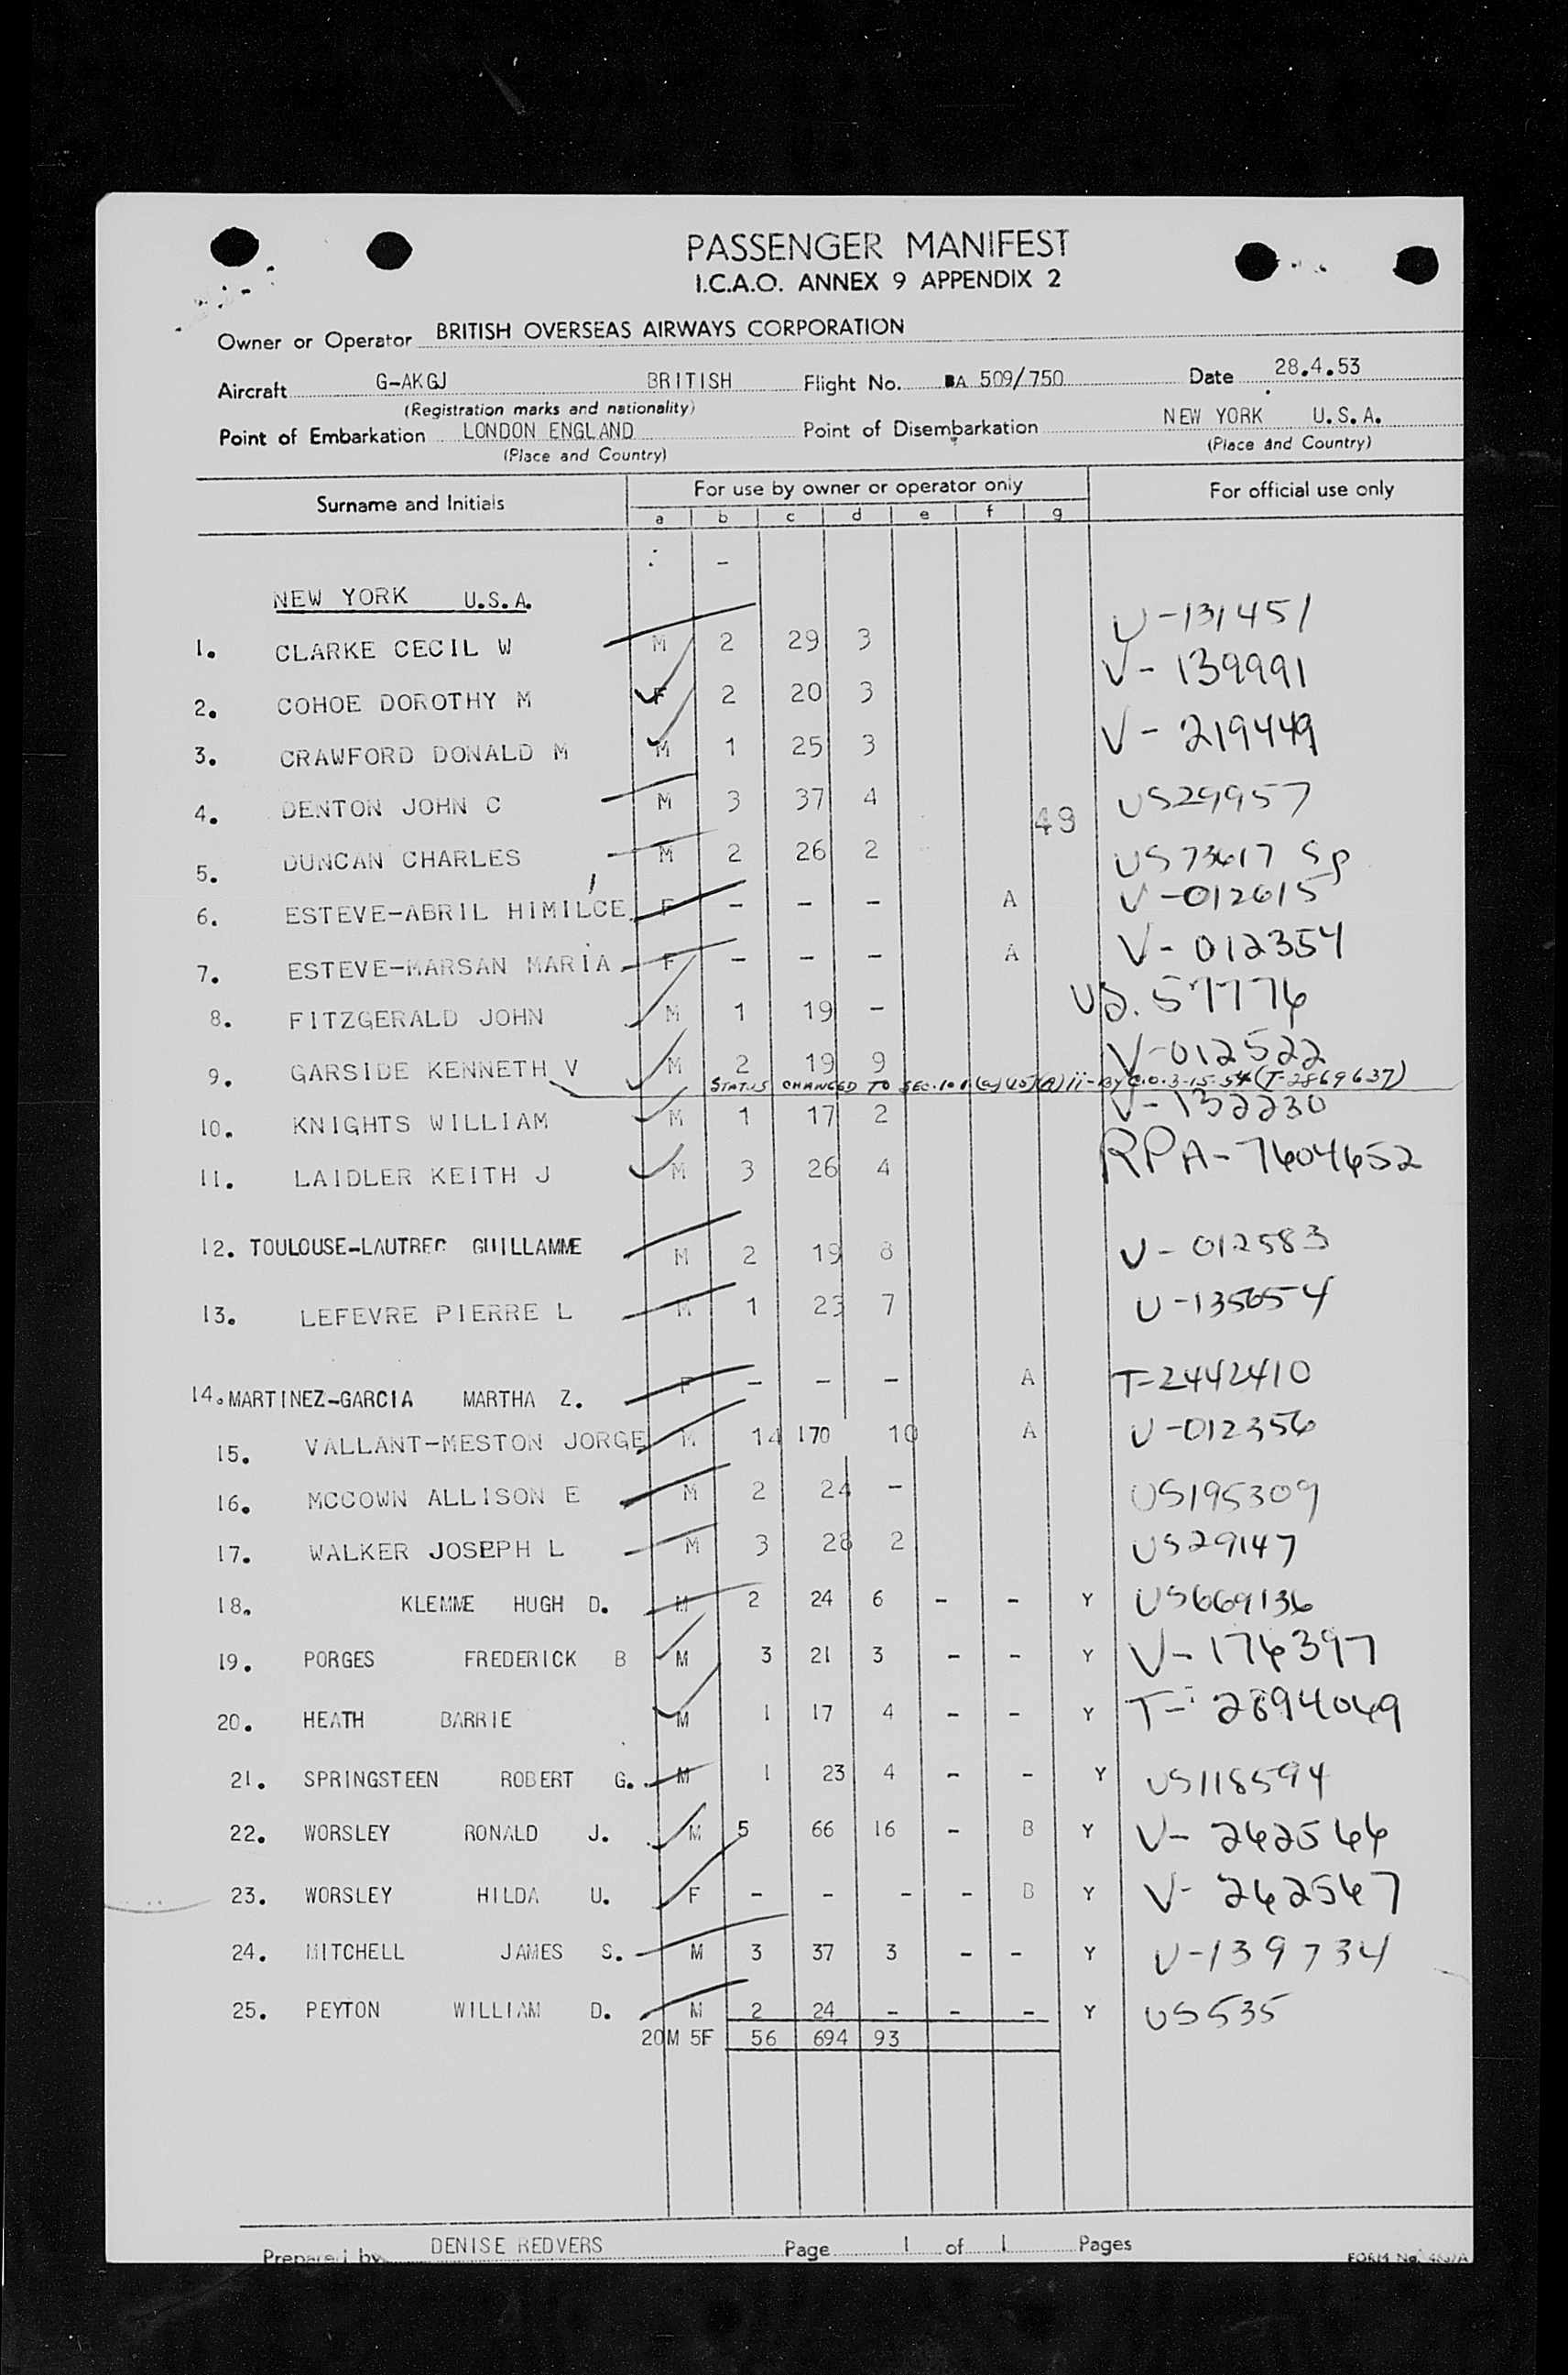 PASSENGER MANIFEST
I.C.A.O. ANNEX 9 APPENDIX 2
Owner or Operator BRITISH OVERSEAS AIRWAYS CORPORATION
Aircraft G-AKGJ BRITISH Flight No. BA 509/750 Date 28.4.53
(Registration marks and nationality)
Point of Embarkation LONDON ENGLAND Point of Disembarkation NEW YORK U.S.A.
(Place and Country) (Place and Country)
Surname and Initials For use by owner or operator only For official use only
a b c d e f g
NEW YORK U.S.A.
1. CLARKE CECIL W M 2 29 3 U-131451
2. COHOE DOROTHY M F 2 20 3 V-139991
3. CRAWFORD DONALD M M 1 25 3 V-219449
4. DENTON JOHN C M 3 37 4 49 US29957
5. DUNCAN CHARLES M 2 26 2 US73617 Sp
6. ESTEVE-ABRIL HIMILCE F - - - A V-012615
7. ESTEVE-MARSAN MARIA F - - - A V-012354
8. FITZGERALD JOHN M 1 19 - US.57776
9. GARSIDE KENNETH V M 2 19 9 V-012522
STATUS CHANGED TO SEC. 101(a)(15)(A) ii - By C.O. 3-15-54 (T-2869637)
10. KNIGHTS WILLIAM M 1 17 2 V-132230
11. LAIDLER KEITH J M 3 26 4 RPA-7604652
12. TOULOUSE-LAUTREC GUILLAMME M 2 19 8 V-012583
13. LEFEVRE PIERRE L M 1 23 7 U-135654
14. MARTINEZ-GARCIA MARTHA Z. F - - - A T-2442410
15. VALLANT-MESTON JORGE M 14 170 10 A U-012356
16. MCCOWN ALLISON E M 2 24 - US195309
17. WALKER JOSEPH L M 3 28 2 US29147
18. KLEMME HUGH D. M 2 24 6 - - Y US669136
19. PORGES FREDERICK B M 3 21 3 - - Y V-176397
20. HEATH BARRIE M 1 17 4 - - Y T-2894049
21. SPRINGSTEEN ROBERT G. M 1 23 4 - - Y US118594
22. WORSLEY RONALD J. M 5 66 16 - B Y V-262566
23. WORSLEY HILDA U. F - - - - B Y V-262567
24. MITCHELL JAMES S. M 3 37 3 - - Y U-139734
25. PEYTON WILLIAM D. M 2 24 - - - Y US535
20M 5F 56 694 93
Prepared by DENISE REDVERS Page 1 of 1 Pages
FORM No.